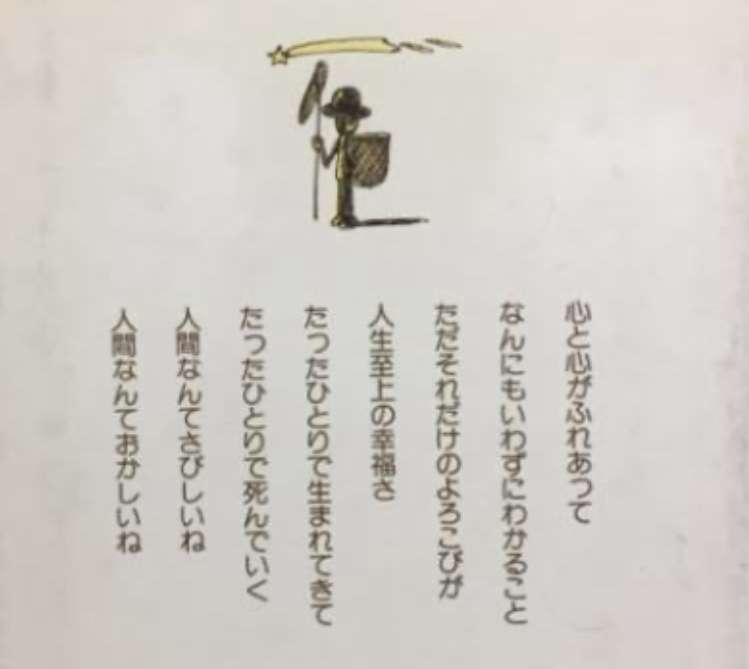 心と心がふれあって
なんにもいわずにわかること
ただそれだけのよろこびが
人生至上の幸福さ
たったひとりで生まれてきて
たったひとりで死んでいく
人間なんてさびしいね
人間なんておかしいね